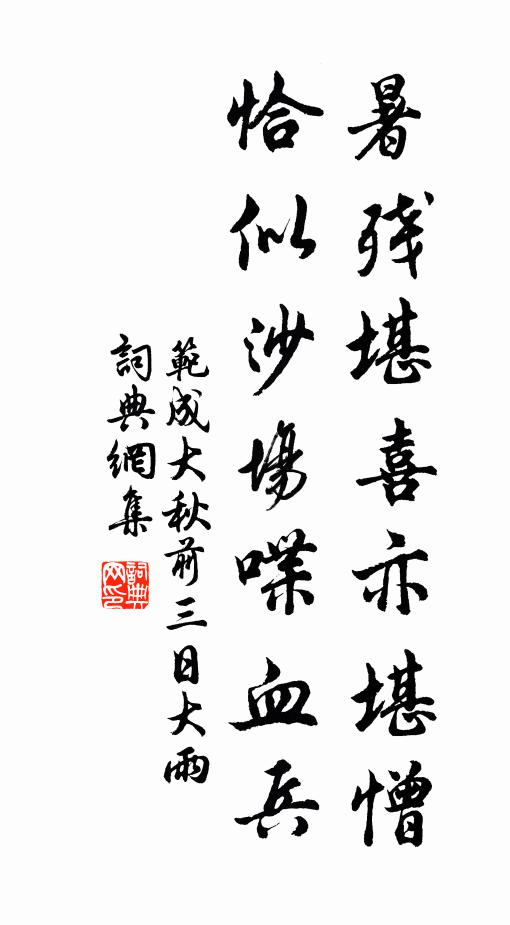 暑残堪喜亦堪憎
恰似沙場喋血兵
範成大秋前三日大雨
詞典網集
詞典
网印